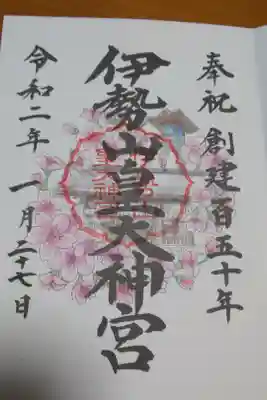 奉祝創建百五十年
伊勢山皇大神宮
令和二年一月二十七日